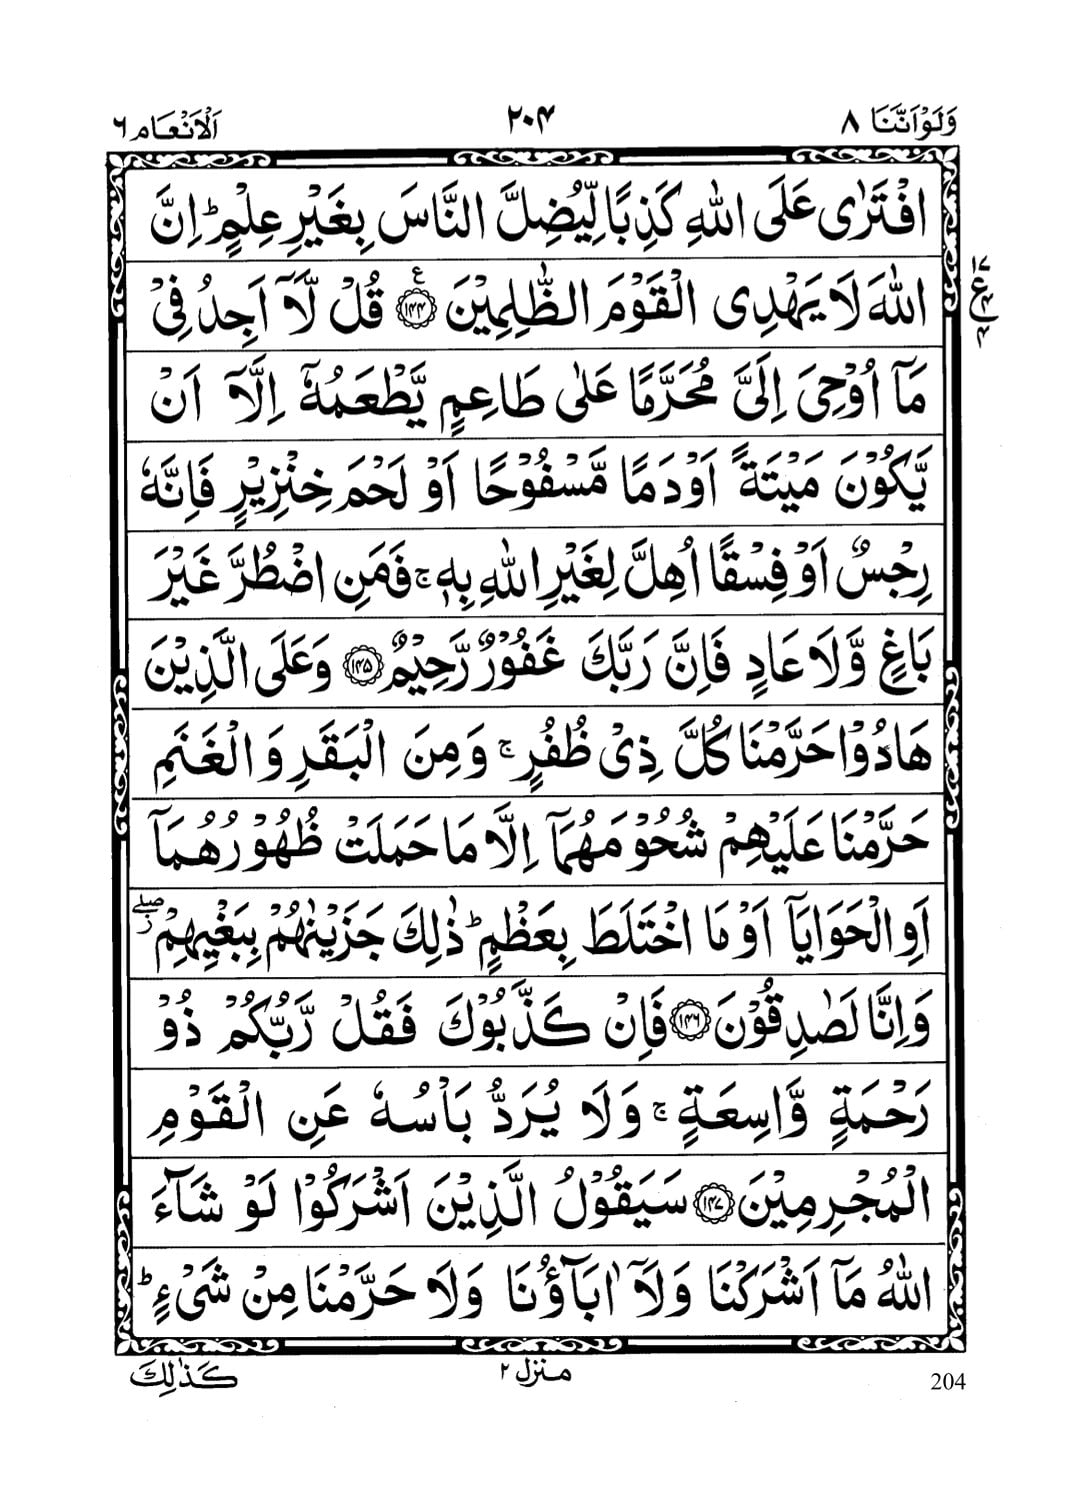 وَلَوْاَنَّنَا ٨
٢٠۴
اَلْاَنْعَام ٦
افْتَرٰى عَلَى اللّٰهِ كَذِبًا لِّيُضِلَّ النَّاسَ بِغَيْرِ عِلْمٍ ؕ اِنَّ
اللّٰهَ لَا يَهْدِى الْقَوْمَ الظّٰلِمِيْنَ ﴿۱۴۴﴾ ع قُلْ لَّاۤ اَجِدُ فِىْ
مَاۤ اُوْحِىَ اِلَىَّ مُحَرَّمًا عَلٰى طَاعِمٍ يَّطْعَمُهٗۤ اِلَّاۤ اَنْ
يَّكُوْنَ مَيْتَةً اَوْ دَمًا مَّسْفُوْحًا اَوْ لَحْمَ خِنْزِيْرٍ فَاِنَّهٗ
رِجْسٌ اَوْ فِسْقًا اُهِلَّ لِغَيْرِ اللّٰهِ بِهٖ ۚ فَمَنِ اضْطُرَّ غَيْرَ
بَاغٍ وَّلَا عَادٍ فَاِنَّ رَبَّكَ غَفُوْرٌ رَّحِيْمٌ ﴿۱۴۵﴾ وَعَلَى الَّذِيْنَ
هَادُوْا حَرَّمْنَا كُلَّ ذِىْ ظُفُرٍ ۚ وَمِنَ الْبَقَرِ وَالْغَنَمِ
حَرَّمْنَا عَلَيْهِمْ شُحُوْمَهُمَاۤ اِلَّا مَا حَمَلَتْ ظُهُوْرُهُمَاۤ
اَوِ الْحَوَايَاۤ اَوْ مَا اخْتَلَطَ بِعَظْمٍ ؕ ذٰلِكَ جَزَيْنٰهُمْ بِبَغْيِهِمْ ۖز
وَاِنَّا لَصٰدِقُوْنَ ﴿۱۴۶﴾ فَاِنْ كَذَّبُوْكَ فَقُلْ رَّبُّكُمْ ذُوْ
رَحْمَةٍ وَّاسِعَةٍ ۚ وَلَا يُرَدُّ بَاْسُهٗ عَنِ الْقَوْمِ
الْمُجْرِمِيْنَ ﴿۱۴۷﴾ سَيَقُوْلُ الَّذِيْنَ اَشْرَكُوْا لَوْ شَآءَ
اللّٰهُ مَاۤ اَشْرَكْنَا وَلَاۤ اٰبَآؤُنَا وَلَا حَرَّمْنَا مِنْ شَىْءٍ ؕ
كَذٰلِكَ
منزل ٢
204